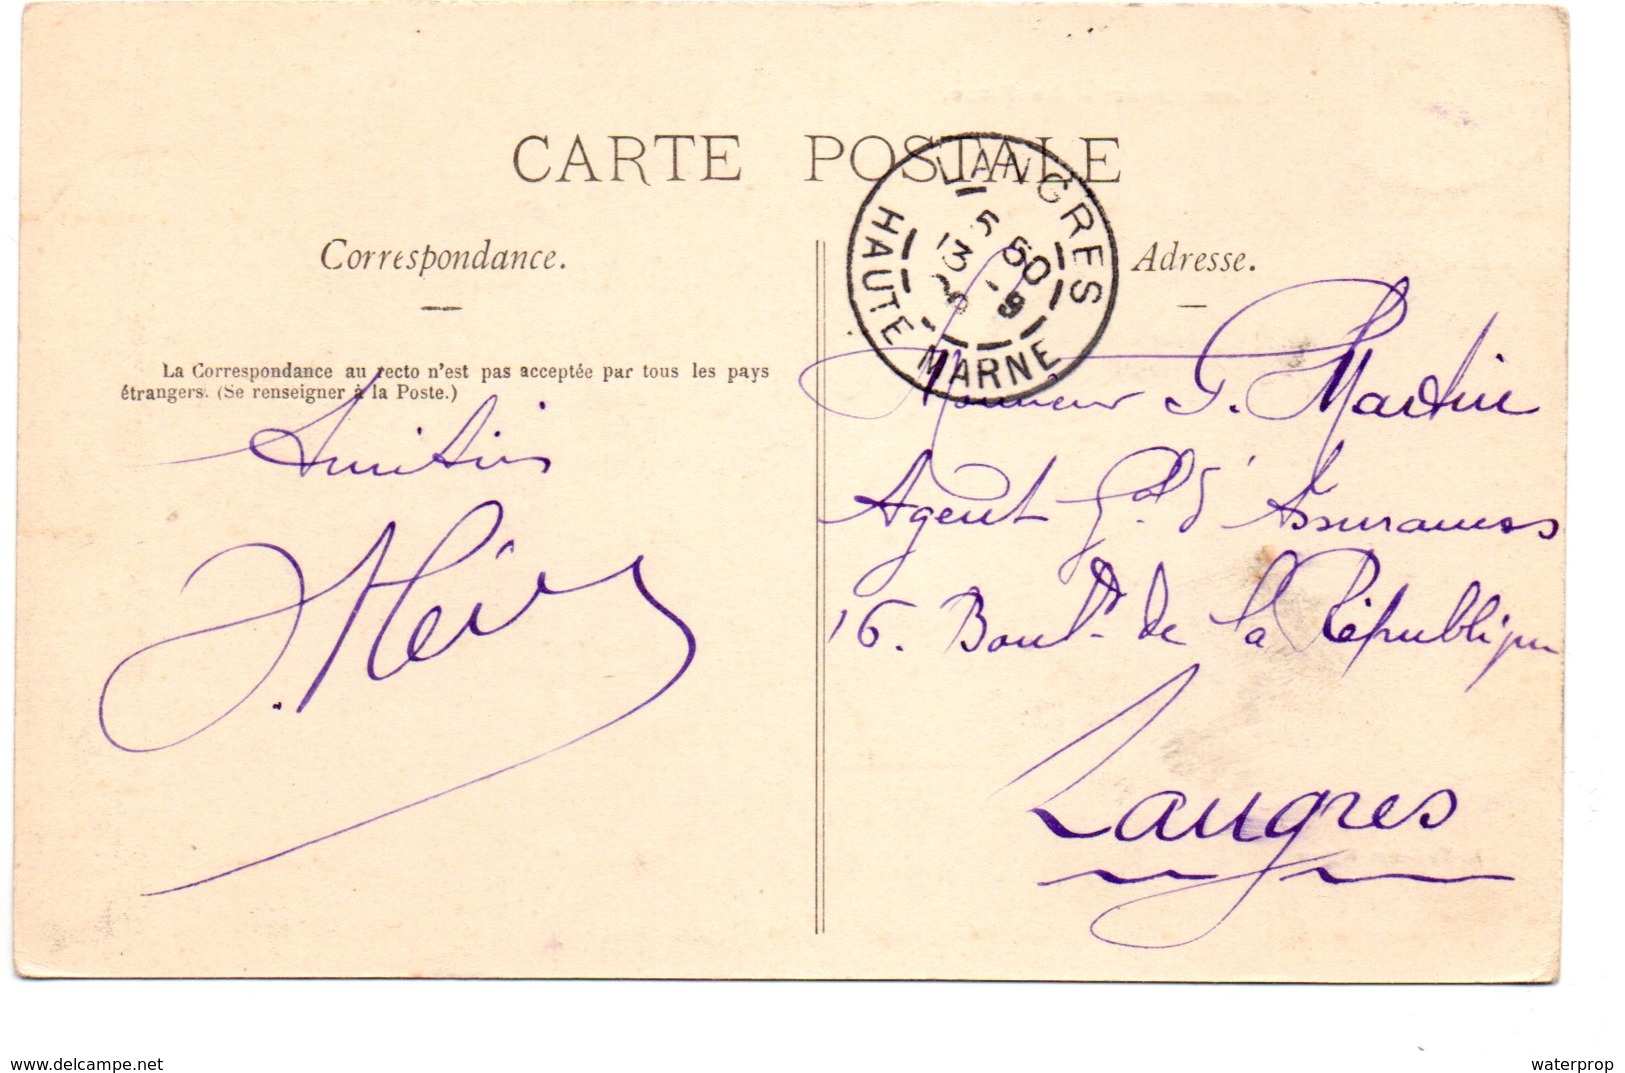 CARTE POSTALE
LANGRES
5 50
13 -9
HAUTE-MARNE
Correspondance.
Adresse.
La Correspondance au recto n'est pas acceptée par tous les pays
étrangers. (Se renseigner à la Poste.)
Amitiés
Monsieur G. Martin
Agent Gal d'Assurances
16. Boult de la République
Langres
www.delcampe.net
waterprop